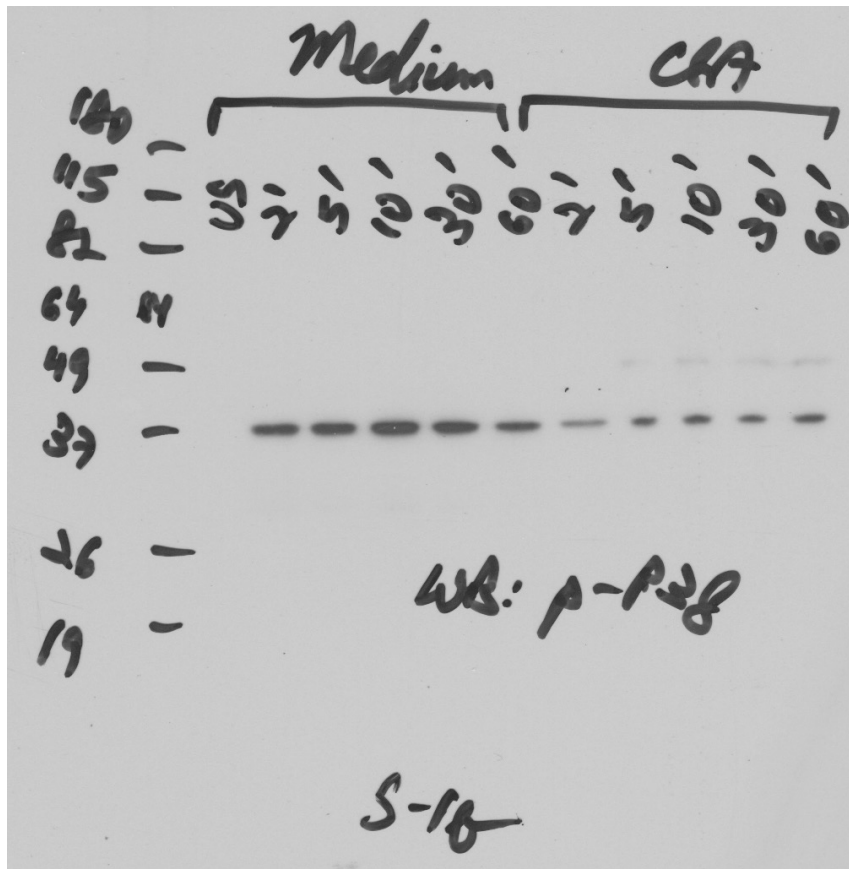 Medium CHA
180
115
82
64
49
37
26
19
US 2' 5' 10' 30' 60' 2' 5' 10' 30' 60'
WB: p-P38